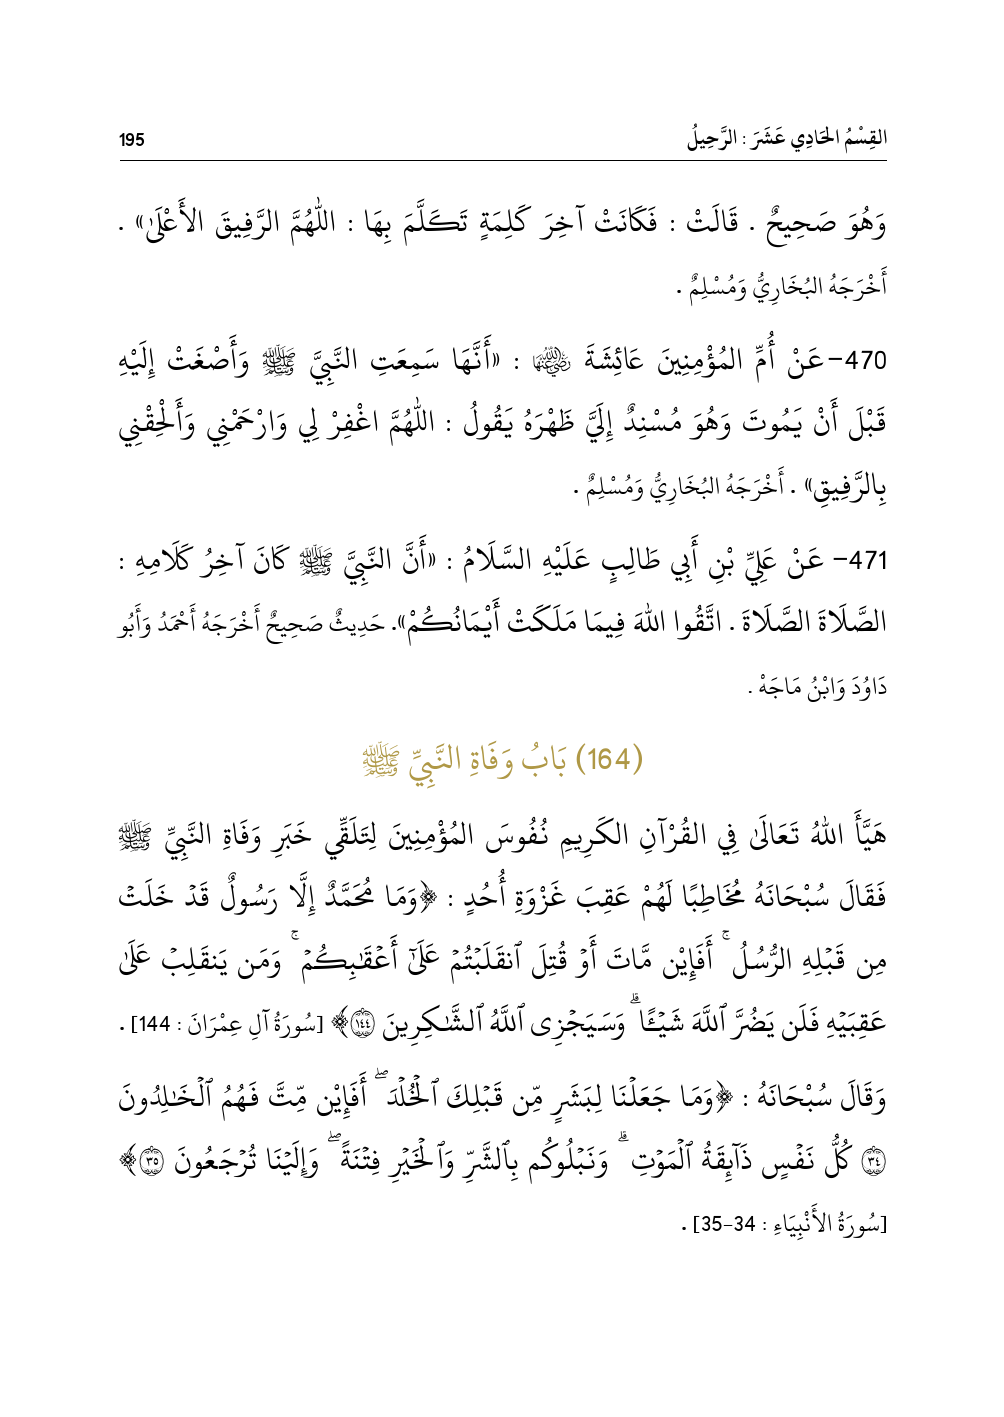 القِسْمُ الحَادِي عَشَرَ : الرَّحِيلُ
195
وَهُوَ صَحِيحٌ . قَالَتْ : فَكَانَتْ آخِرَ كَلِمَةٍ تَكَلَّمَ بِهَا : اللّٰهُمَّ الرَّفِيقَ الأَعْلَىٰ» .
أَخْرَجَهُ البُخَارِيُّ وَمُسْلِمٌ .
470- عَنْ أُمِّ المُؤْمِنِينَ عَائِشَةَ رضي الله عنها : «أَنَّهَا سَمِعَتِ النَّبِيَّ ﷺ وَأَصْغَتْ إِلَيْهِ
قَبْلَ أَنْ يَمُوتَ وَهُوَ مُسْنِدٌ إِلَيَّ ظَهْرَهُ يَقُولُ : اللّٰهُمَّ اغْفِرْ لِي وَارْحَمْنِي وَأَلْحِقْنِي
بِالرَّفِيقِ» . أَخْرَجَهُ البُخَارِيُّ وَمُسْلِمٌ .
471- عَنْ عَلِيِّ بْنِ أَبِي طَالِبٍ عَلَيْهِ السَّلَامُ : «أَنَّ النَّبِيَّ ﷺ كَانَ آخِرُ كَلَامِهِ :
الصَّلَاةَ الصَّلَاةَ . اتَّقُوا اللهَ فِيمَا مَلَكَتْ أَيْمَانُكُمْ». حَدِيثٌ صَحِيحٌ أَخْرَجَهُ أَحْمَدُ وَأَبُو
دَاوُدَ وَابْنُ مَاجَهْ .
(164) بَابُ وَفَاةِ النَّبِيِّ ﷺ
هَيَّأَ اللهُ تَعَالَىٰ فِي القُرْآنِ الكَرِيمِ نُفُوسَ المُؤْمِنِينَ لِتَلَقِّي خَبَرِ وَفَاةِ النَّبِيِّ ﷺ
فَقَالَ سُبْحَانَهُ مُخَاطِبًا لَهُمْ عَقِبَ غَزْوَةِ أُحُدٍ : ﴿وَمَا مُحَمَّدٌ إِلَّا رَسُولٌ قَدْ خَلَتْ
مِن قَبْلِهِ الرُّسُلُ ۚ أَفَإِيْن مَّاتَ أَوْ قُتِلَ ٱنقَلَبْتُمْ عَلَىٰٓ أَعْقَـٰبِكُمْ ۚ وَمَن يَنقَلِبْ عَلَىٰ
عَقِبَيْهِ فَلَن يَضُرَّ ٱللَّهَ شَيْـًٔا ۗ وَسَيَجْزِى ٱللَّهُ ٱلشَّـٰكِرِينَ ١٤٤﴾ [سُورَةُ آلِ عِمْرَانَ : 144] .
وَقَالَ سُبْحَانَهُ : ﴿وَمَا جَعَلْنَا لِبَشَرٍ مِّن قَبْلِكَ ٱلْخُلْدَ ۖ أَفَإِيْن مِّتَّ فَهُمُ ٱلْخَـٰلِدُونَ
٣٤ كُلُّ نَفْسٍ ذَآئِقَةُ ٱلْمَوْتِ ۗ وَنَبْلُوكُم بِٱلشَّرِّ وَٱلْخَيْرِ فِتْنَةً ۖ وَإِلَيْنَا تُرْجَعُونَ ٣٥﴾
[سُورَةُ الأَنْبِيَاءِ : 34-35] .